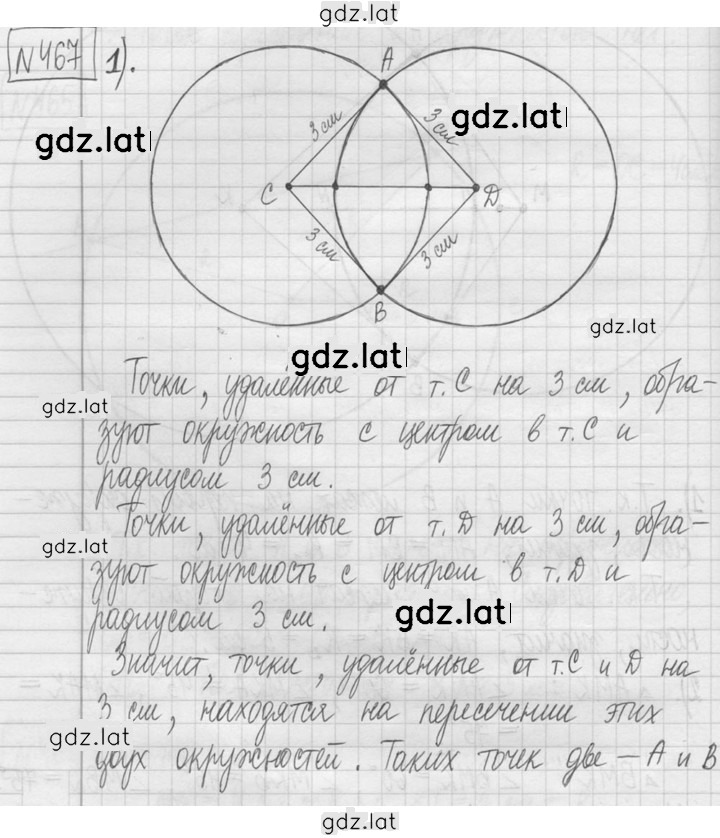 gdz.lat
N 467 1).
A
gdz.lat
gdz.lat
3 см
3 см
C
D
3 см
3 см
B
gdz.lat
gdz.lat
Точки, удалённые от т. C на 3 см, обра-
gdz.lat
зуют окружность с центром в т. C и
радиусом 3 см.
Точки, удалённые от т. D на 3 см, обра-
gdz.lat
зуют окружность с центром в т. D и
радиусом 3 см.
gdz.lat
Значит, точки, удалённые от т. C и D на
3 см, находятся на пересечении этих
gdz.lat
двух окружностей. Таких точек две – A и B
gdz.lat